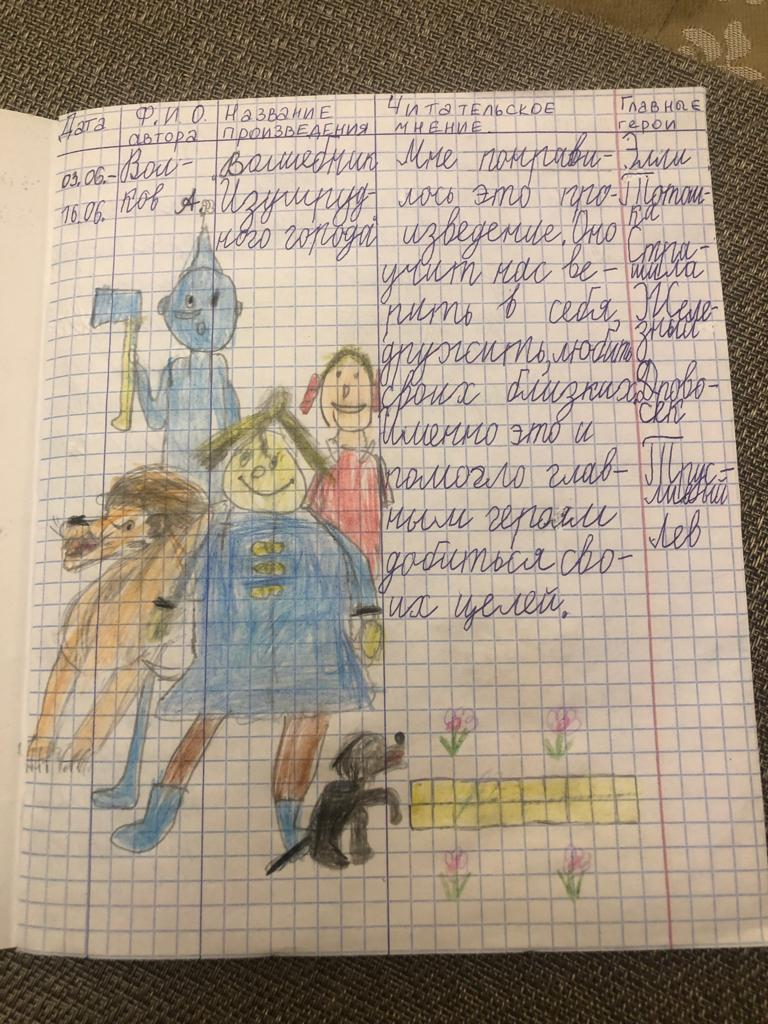 Дата
Ф.И.О. автора
Название произведения
Читательское мнение.
Главные герои
03.06.-
16.06.
Вол-
ков А.
Волшебник
Изумруд-
ного города
Мне понрави-
лось это про-
изведение. Оно
учит нас ве-
рить в себя,
дружить, любить
своих близких.
Именно это и
помогло глав-
ным героям
добиться сво-
их целей.
Элли
Тотош-
ка
Стра-
шила
Желе-
зный
Дрово-
сек
Трус-
ливый
Лев